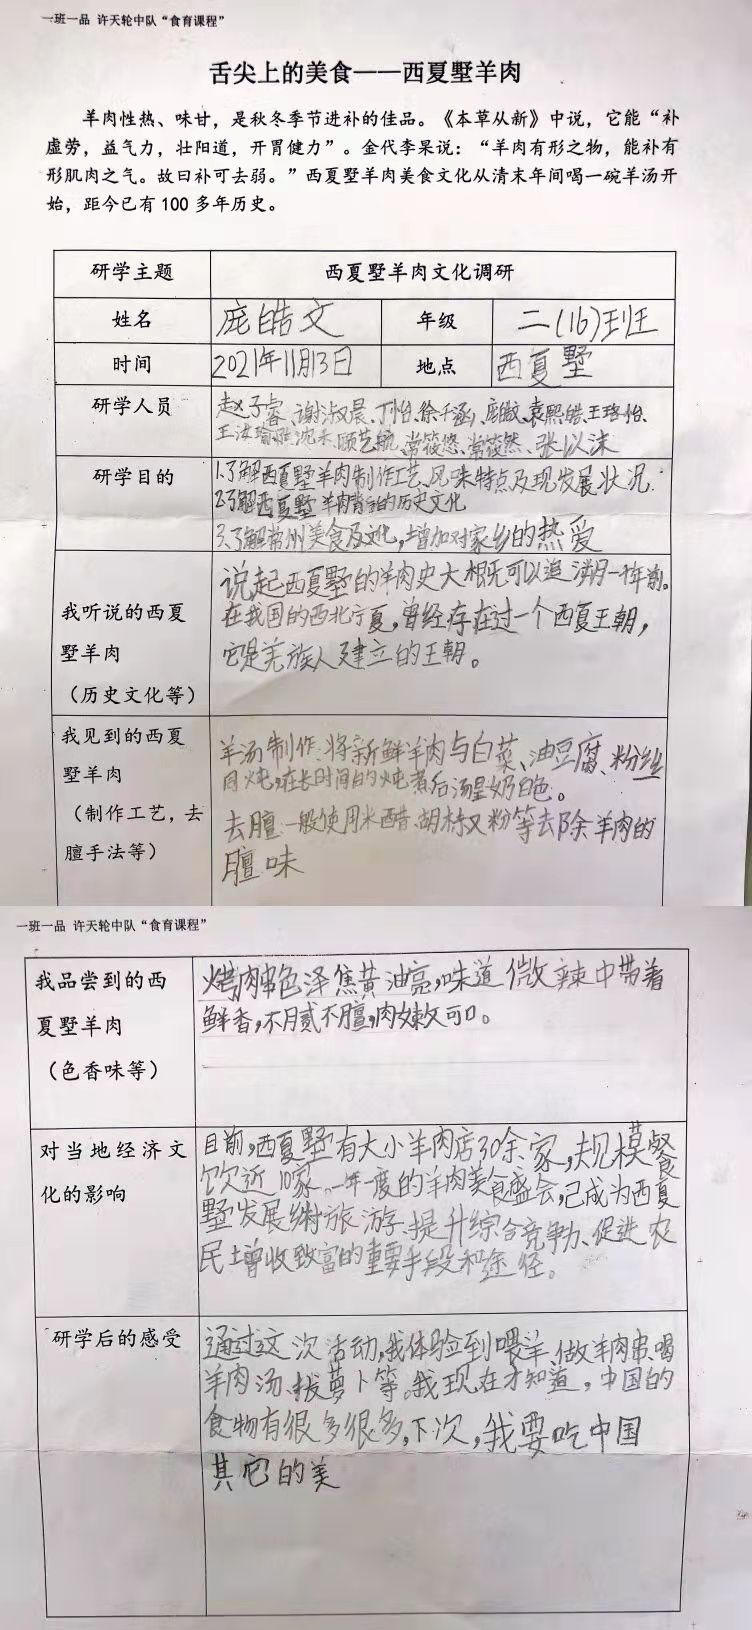 一班一品 许天轮中队“食育课程”
舌尖上的美食——西夏墅羊肉
羊肉性热、味甘，是秋冬季节进补的佳品。《本草从新》中说，它能“补
虚劳，益气力，壮阳道，开胃健力”。金代李杲说：“羊肉有形之物，能补有
形肌肉之气。故曰补可去弱。”西夏墅羊肉美食文化从清末年间喝一碗羊汤开
始，距今已有100多年历史。
研学主题 西夏墅羊肉文化调研
姓名 庞皓文 年级 二(16)班
时间 2021年11月13日 地点 西夏墅
研学人员
赵子睿、谢淑晨、丁怡、徐千涵、庞皎、袁熙皓、王珞怡、
王汝瑜、沈禾、顾艺航、常筱悠、常筱然、张以沫
研学目的
1.了解西夏墅羊肉制作工艺、风味特点及现发展状况.
2.了解西夏墅羊肉背后的历史文化
3.了解常州美食及文化，增加对家乡的热爱
我听说的西夏
墅羊肉
（历史文化等）
说起西夏墅的羊肉史大概可以追溯一千年前。
在我国的西北宁夏，曾经存在过一个西夏王朝，
它是羌族人建立的王朝。
我见到的西夏
墅羊肉
（制作工艺，去
膻手法等）
羊汤制作：将新鲜羊肉与白菜、油豆腐、粉丝
同炖，在长时间的炖煮后汤呈奶白色。
去膻：一般使用米醋、胡椒粉等去除羊肉的
膻味
一班一品 许天轮中队“食育课程”
我品尝到的西
夏墅羊肉
（色香味等）
烤肉串色泽焦黄油亮，味道微辣中带着
鲜香，不腻不膻，肉嫩可口。
对当地经济文
化的影响
目前，西夏墅有大小羊肉店30余家，规模餐
饮近10家。一年一度的羊肉美食盛会，已成为西夏
墅发展乡村旅游、提升综合竞争力、促进农
民增收致富的重要手段和途径。
研学后的感受
通过这次活动，我体验到喂羊、做羊肉串、喝
羊肉汤、拔萝卜等。我现在才知道，中国的
食物有很多很多，下次，我要吃中国
其它的美